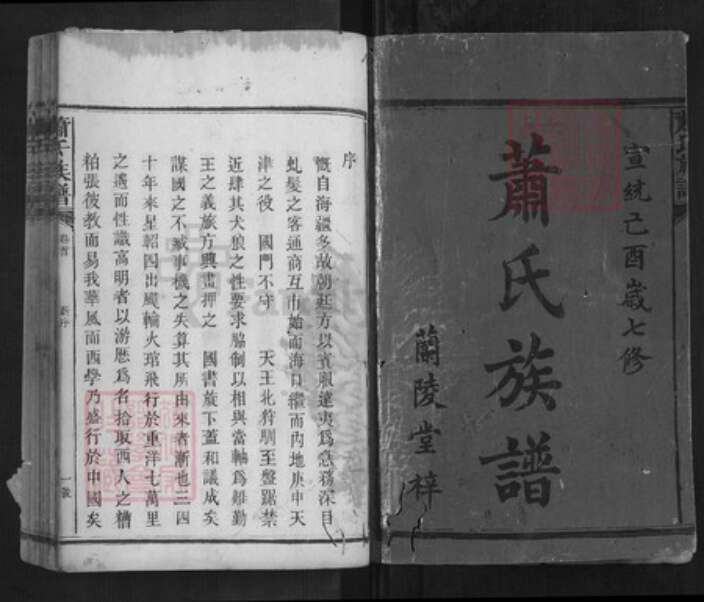 宣統己酉歲七修
蕭氏族譜
蘭陵堂梓
序
慨自海疆多故朝廷方以賓服遠夷為急務深目
虬髮之客通商互市始而海口繼而內地庚申天
津之役 國門不守 天王北狩馴至盤踞禁
近肆其犬狼之性要求脇制以相與當軸為難勤
王之義旅方興畫押之 國書旋下蓋和議成矣
謀國之不臧事機之失算其所由來者漸也三四
十年來星軺四出颷輪火琯飛行於重洋七萬里
之遙而性識高明者以游歷為名拾取西人之糟
粕張彼教而易我華風而西學乃盛行於中國矣
蕭氏族譜
卷首